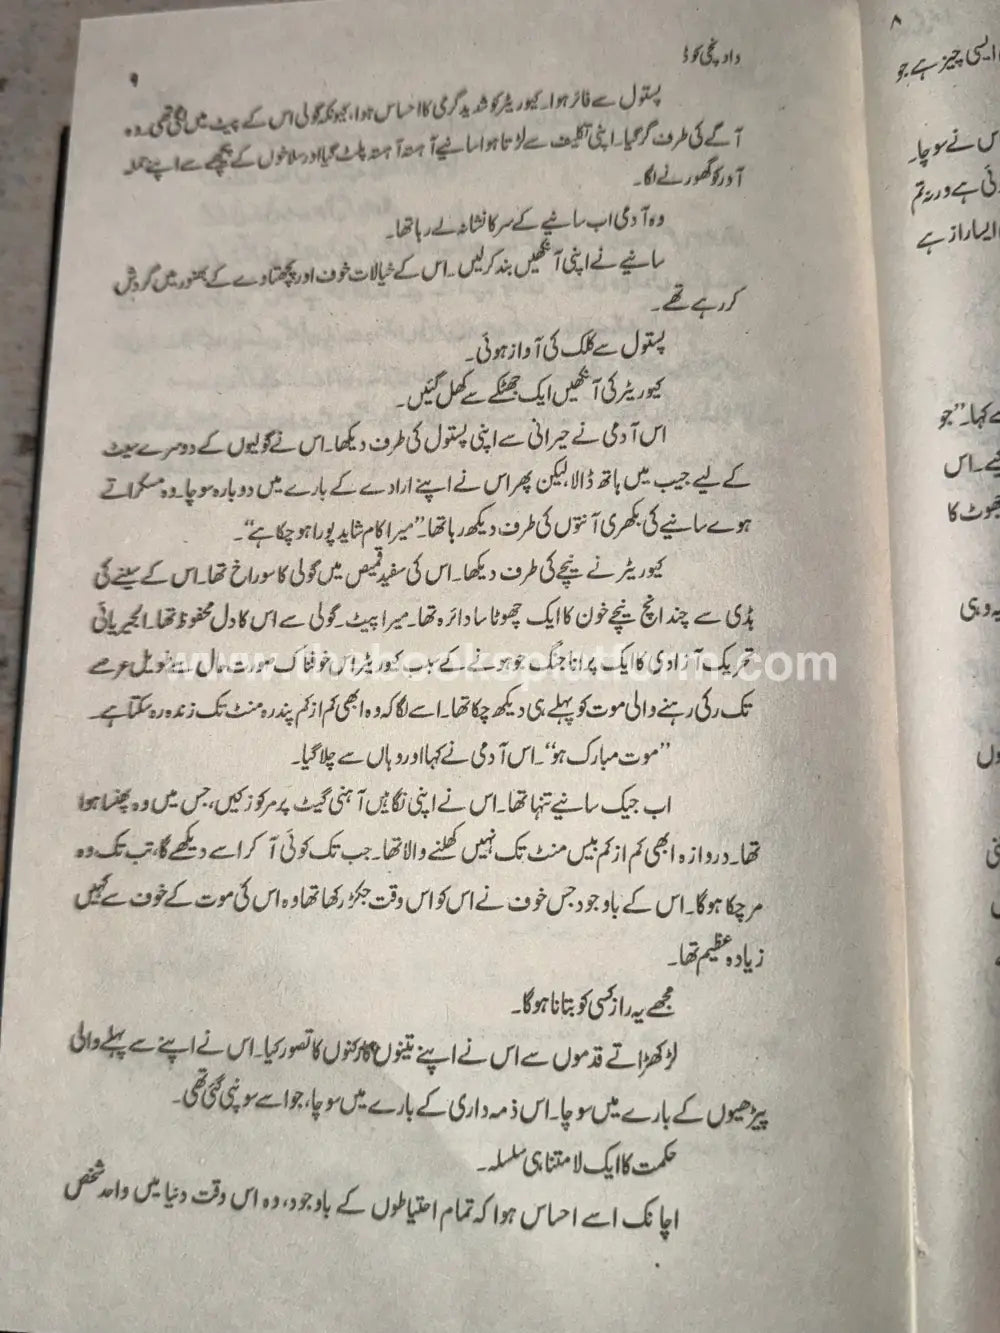 داونچی کوڈ
۹
پستول سے فائر ہوا۔ کیوریٹر کو شدید گرمی کا احساس ہوا، کیونکہ گولی اس کے پیٹ میں لگی تھی۔ وہ
آگے کی طرف گر گیا۔ اپنی تکلیف سے لڑتا ہوا سانیے آہستہ آہستہ پلٹ گیا اور سلاخوں کے پیچھے سے اپنے حملہ
آور کو گھورنے لگا۔
وہ آدمی اب سانیے کے سر کا نشانہ لے رہا تھا۔
سانیے نے اپنی آنکھیں بند کرلیں۔ اس کے خیالات خوف اور پچھتاوے کے بھنور میں گردش
کر رہے تھے۔
پستول سے کلک کی آواز ہوئی۔
کیوریٹر کی آنکھیں ایک جھٹکے سے کھل گئیں۔
اس آدمی نے حیرانی سے اپنی پستول کی طرف دیکھا۔ اس نے گولیوں کے دوسرے سیٹ
کے لیے جیب میں ہاتھ ڈالا، لیکن پھر اس نے اپنے ارادے کے بارے میں دوبارہ سوچا۔ وہ مسکراتے
ہوے سانیے کی بکھری آنتوں کی طرف دیکھ رہا تھا۔ ”میرا کام شاید پورا ہوچکا ہے“۔
کیوریٹر نے نیچے کی طرف دیکھا۔ اس کی سفید قمیص میں گولی کا سوراخ تھا۔ اس کے سینے کی
ہڈی سے چند انچ نیچے خون کا ایک چھوٹا سا دائرہ تھا۔ میرا پیٹ۔ گولی سے اس کا دل محفوظ تھا۔ الجیریائی
تحریک آزادی کا ایک پرانا جنگ جو ہونے کے سبب کیوریٹر اس خوفناک صورت حال سے طویل عرصے
تک رکی رہنے والی موت کو پہلے ہی دیکھ چکا تھا۔ اسے لگا کہ وہ ابھی کم از کم پندرہ منٹ تک زندہ رہ سکتا ہے۔
”موت مبارک ہو“۔ اس آدمی نے کہا اور وہاں سے چلا گیا۔
اب جیک سانیے تنہا تھا۔ اس نے اپنی نگاہیں آہنی گیٹ پر مرکوز کیں، جس میں وہ پھنسا ہوا
تھا۔ دروازہ ابھی کم از کم بیس منٹ تک نہیں کھلنے والا تھا۔ جب تک کوئی آ کر اسے دیکھے گا، تب تک وہ
مر چکا ہوگا۔ اس کے باوجود جس خوف نے اس کو اس وقت جکڑ رکھا تھا وہ اس کی موت کے خوف سے کہیں
زیادہ عظیم تھا۔
مجھے یہ راز کسی کو بتانا ہوگا۔
لڑکھڑاتے قدموں سے اس نے اپنے تینوں کارکنوں کا تصور کیا۔ اس نے اپنے سے پہلے والی
پیڑھیوں کے بارے میں سوچا۔ اس ذمہ داری کے بارے میں سوچا، جو اسے سونپی گئی تھی۔
حکمت کا ایک لا متناہی سلسلہ۔
اچانک اسے احساس ہوا کہ تمام احتیاطوں کے باوجود، وہ اس وقت دنیا میں واحد شخص
۸
ایسی چیز ہے جو
س نے سوچا۔
ئی ہے ورنہ تم
ایسا راز ہے
ے کہا۔ ”جو
ہے۔ اس
جھوٹ کا
یہ وہی
www.thebooksplatform.com